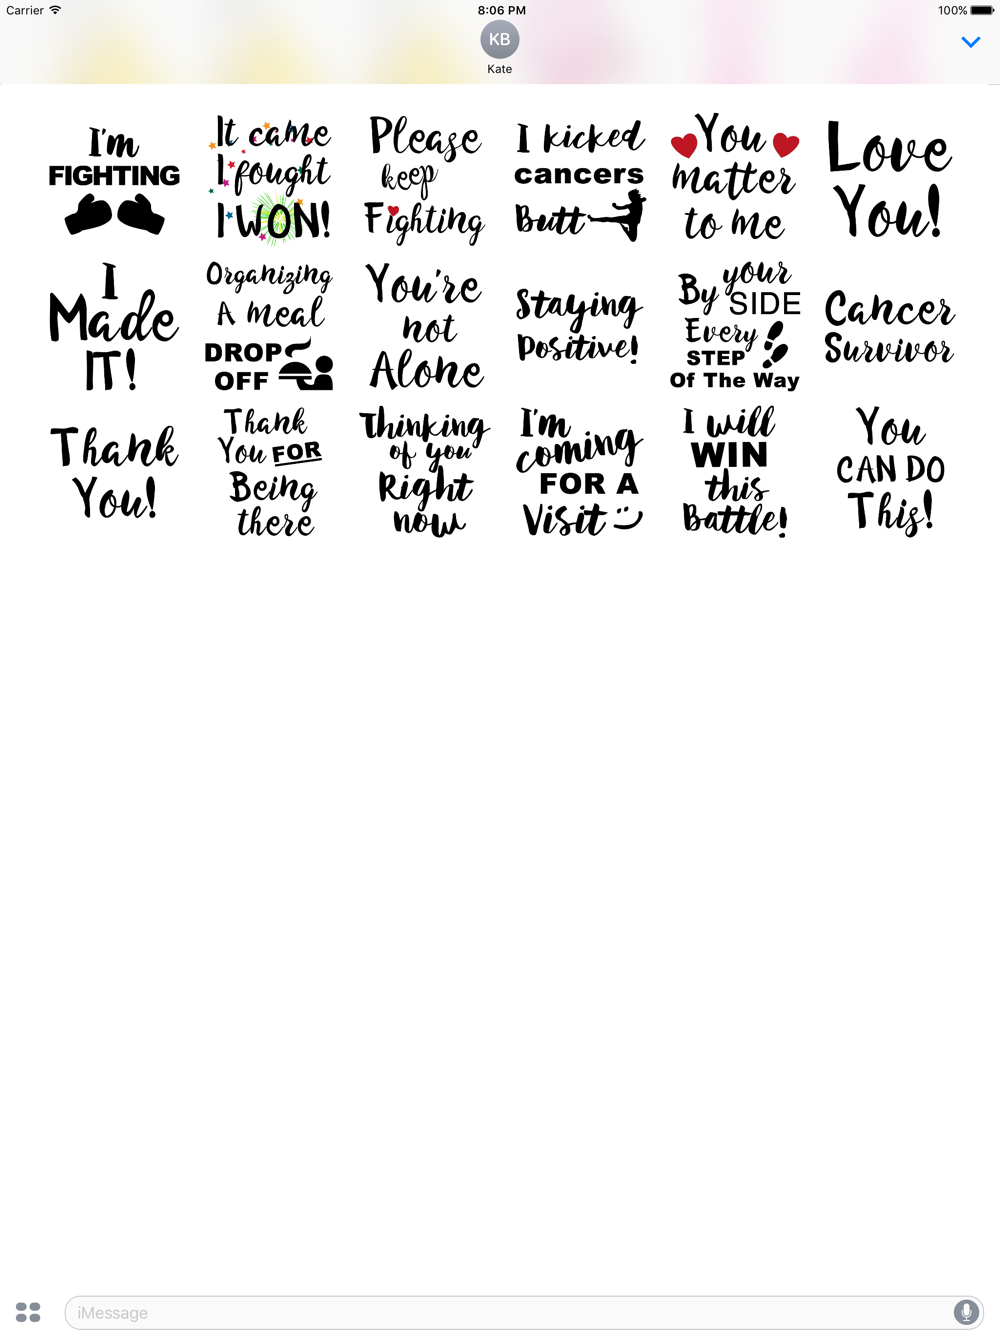 Carrier
8:06 PM
100%
KB
Kate
I'm
FIGHTING
It came
I fought
I WON!
Please
keep
Fighting
I kicked
cancers
Butt
You
matter
to me
Love
You!
I
Made
IT!
Organizing
A meal
DROP
OFF
You're
not
Alone
Staying
Positive!
By your
SIDE
Every
STEP
Of The Way
Cancer
Survivor
Thank
You!
Thank
You FOR
Being
there
Thinking
of you
Right
now
I'm
coming
FOR A
Visit
I will
WIN
this
Battle!
You
CAN DO
This!
iMessage